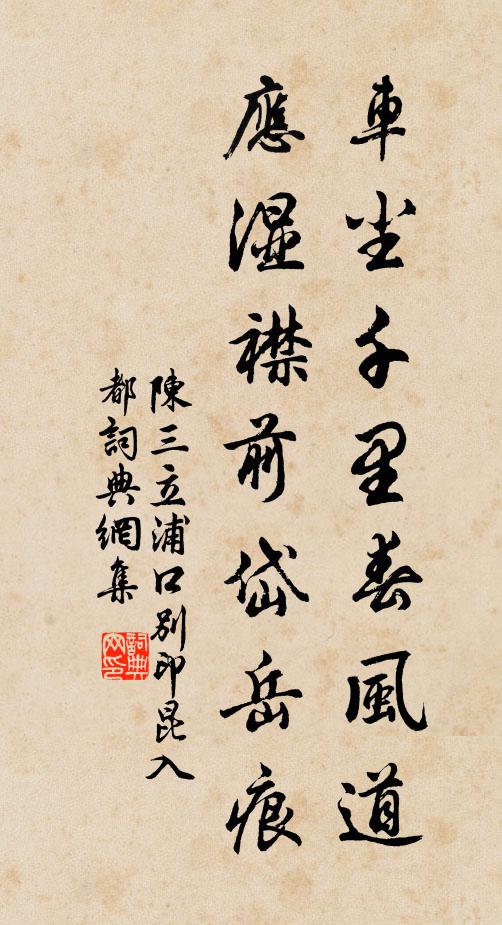 車尘千里春風道
應湿襟前岱岳痕
陳三立浦口别印昆入
都詞典網集
詞典
网印